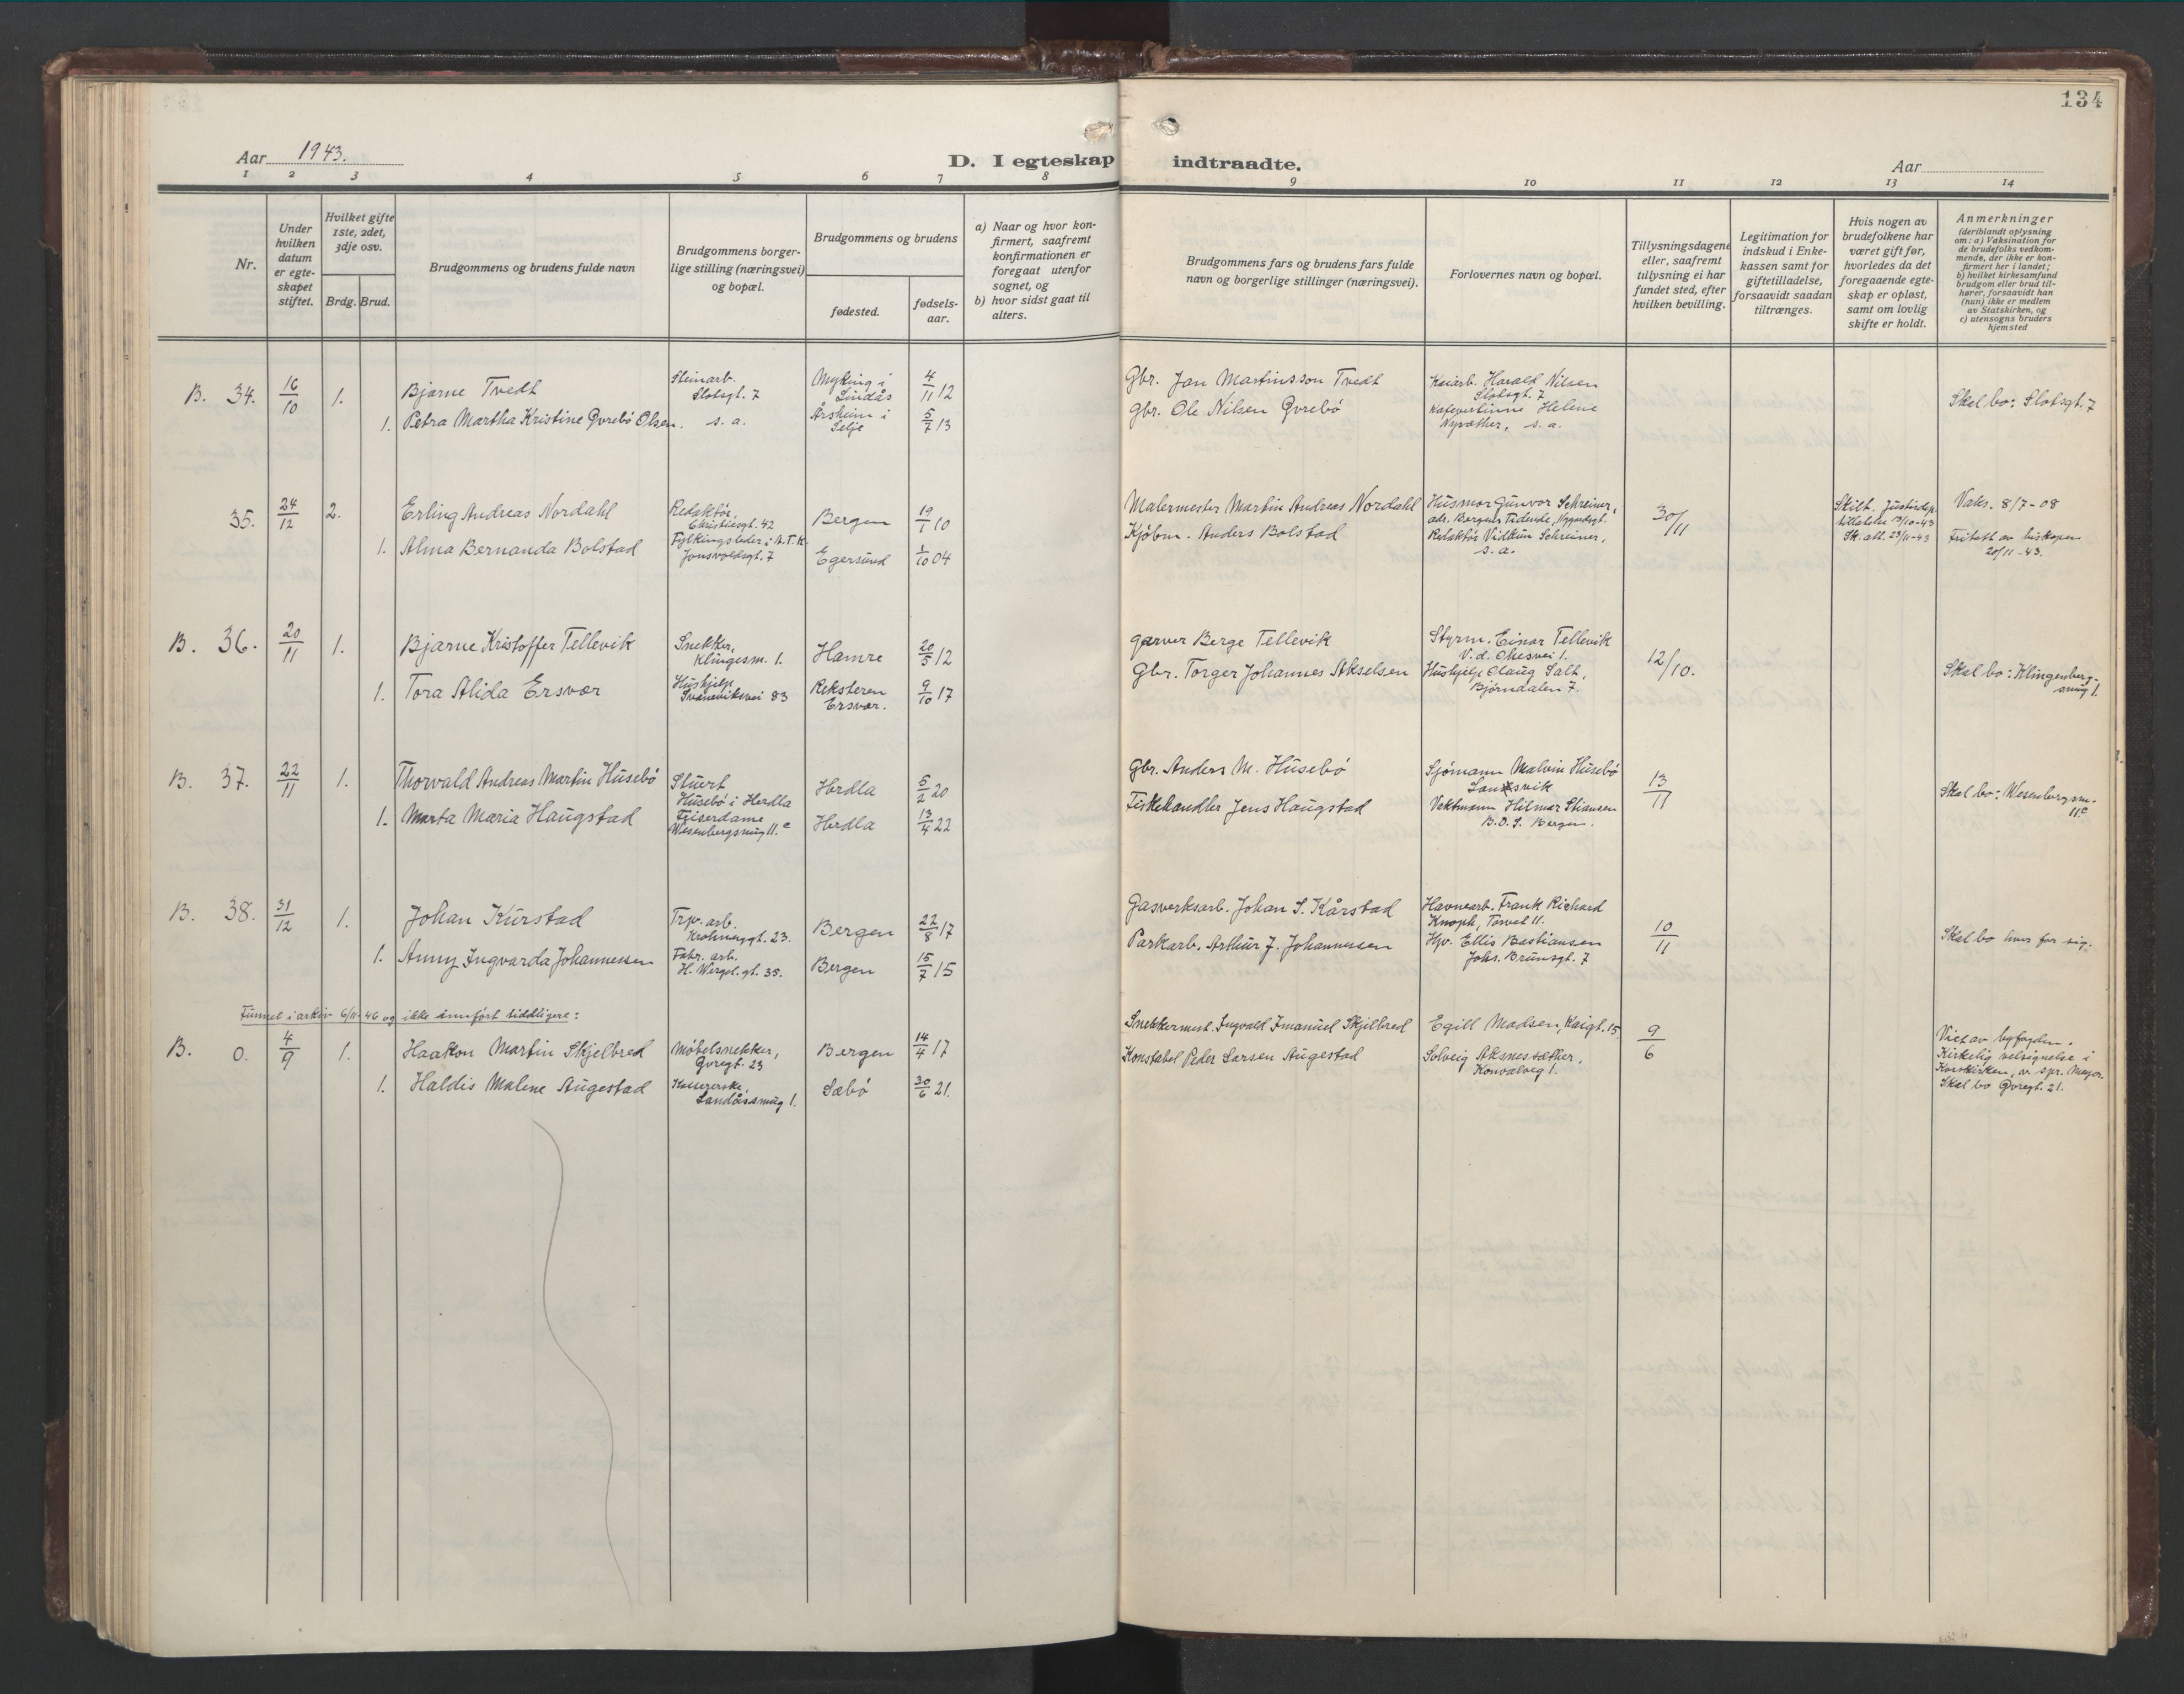 134
Aar 1943.
D. I egteskap indtraadte.
Aar
1 2 3 4 5 6 7 8 9 10 11 12 13 14
Nr.
Under hvilken datum er egteskapet stiftet.
Hvilket gifte 1ste, 2det, 3dje osv.
Brdg. Brud.
Brudgommens og brudens fulde navn
Brudgommens borgerlige stilling (næringsvei) og bopæl.
Brudgommens og brudens
fødested.
fødselsaar.
a) Naar og hvor konfirmert, saafremt konfirmationen er foregaat utenfor sognet, og
b) hvor sidst gaat til alters.
Brudgommens fars og brudens fars fulde navn og borgerlige stillinger (næringsvei).
Forlovernes navn og bopæl.
Tillysningsdagene eller, saafremt tillysning ei har fundet sted, efter hvilken bevilling.
Legitimation for indskud i Enkekassen samt for giftetilladelse, forsaavidt saadan tiltrænges.
Hvis nogen av brudefolkene har været gift før, hvorledes da det foregaaende egteskap er opløst, samt om lovlig skifte er holdt.
Anmerkninger
(deriblandt oplysning om: a) Vaksination for de brudefolks vedkommende, der ikke er konfirmert her i landet;
b) hvilket kirkesamfund brudgom eller brud tilhører, forsaavidt han (hun) ikke er medlem av Statskirken, og
c) utensogns bruders hjemsted
B. 34. 16/10 1. Bjarne Tvedt Steinarb. Slotsgt. 7 Myking i Lindås 4/11 12 Gbr. Jan Martinsson Tvedt Kaiarb. Harald Nilsen Slotsgt. 7 Skal bo: Slotsgt. 7
1. Petra Martha Kristine Gvrebö Olsen. s. a. Årsheim i Selje 5/7 13 Gbr. Ole Nilsen Gvrebö Kafevertinne Helene s. a.
35. 24/12 2. Erling Andreas Nordahl Redaktör, Christiesgt. 42 Bergen 19/1 10 Malermester Martin Andreas Nordahl Husmor Gunvor Schreiner, adr. Bergens Tidende, Nygaardsgt. 30/11 Skilt. Vaks. 8/7-08
1. Alma Bernanda Bolstad Fylkingsleder i A.T.K. Jonsvoldsgt. 7 Egersund 1/10 04 Kjöbm. Anders Bolstad Redaktör Vidkun Schreiner, s. a. Sk. att. 23/11-43 Fritatt av biskopen 20/11-43.
B. 36. 20/11 1. Bjarne Kristoffer Tellevik Snekker, Klingesm. 1. Hamre 20/5 12 garver Berge Tellevik Styrm. Einar Tellevik V. d. Ohesvei 1. 12/10. Skal bo: Klingenbergsmug 1.
1. Tora Alida Ersvær Hushjelp Svaneviksvei 83 Reksteren Ersvær. 9/10 17 Gbr. Torger Johannes Akselsen Hushjelp Olaug Salt, Bjørndalen 7.
B. 37. 22/11 1. Thorvald Andreas Martin Husebö Stuert Husebö i Herdla Herdla 5/2 20 Gbr. Anders M. Husebö Sjömann Malvin Husebö 13/11 Skal bo: Wesenbergsm. 11c
1. Marta Maria Haugstad Feiserdame Wesenbergsmug 11.c Herdla 13/4 22 Fiskehandler Jens Haugstad Vaktmann Hilmar Stiansen B.D.S. Bergen.
B. 38. 31/12 1. Johan Kårstad Trp. arb. Krohnengt. 23. Bergen 22/8 17 Gasverksarb. Johan S. Kårstad Havnearb. Frank Richard Knoph, Torvet 11. 10/11 Skal bo hver for sig.
1. Anny Ingvarda Johannessen Fabr. arb. H. Wergel. gt. 35. Bergen 15/7 15 Parkarb. Arthur J. Johannessen Hpv. Ellis Bastiansen Johs. Brunsgt. 7
Funnet i arkiv 6/11-46 og ikke innfört tiddligere:
B. 0. 4/9 1. Haakon Martin Skjelbred Möbelsnekker, Gvregt. 23 Bergen 14/4 17 Snekkermest. Ingvald Imanuel Skjelbred Egill Madsen, Kaigt. 15 9/6 Viet av byfogden. Kirkelig velsignelse i Korskirken, av spr. Meyer. Skal bo Gvregt. 21.
1. Haldis Malene Augestad Kassererske, Landåssmug 1. Sæbö 30/6 21. Konstabel Peder Larsen Augestad Solveig Aksnessæther. Konvalveg 1.